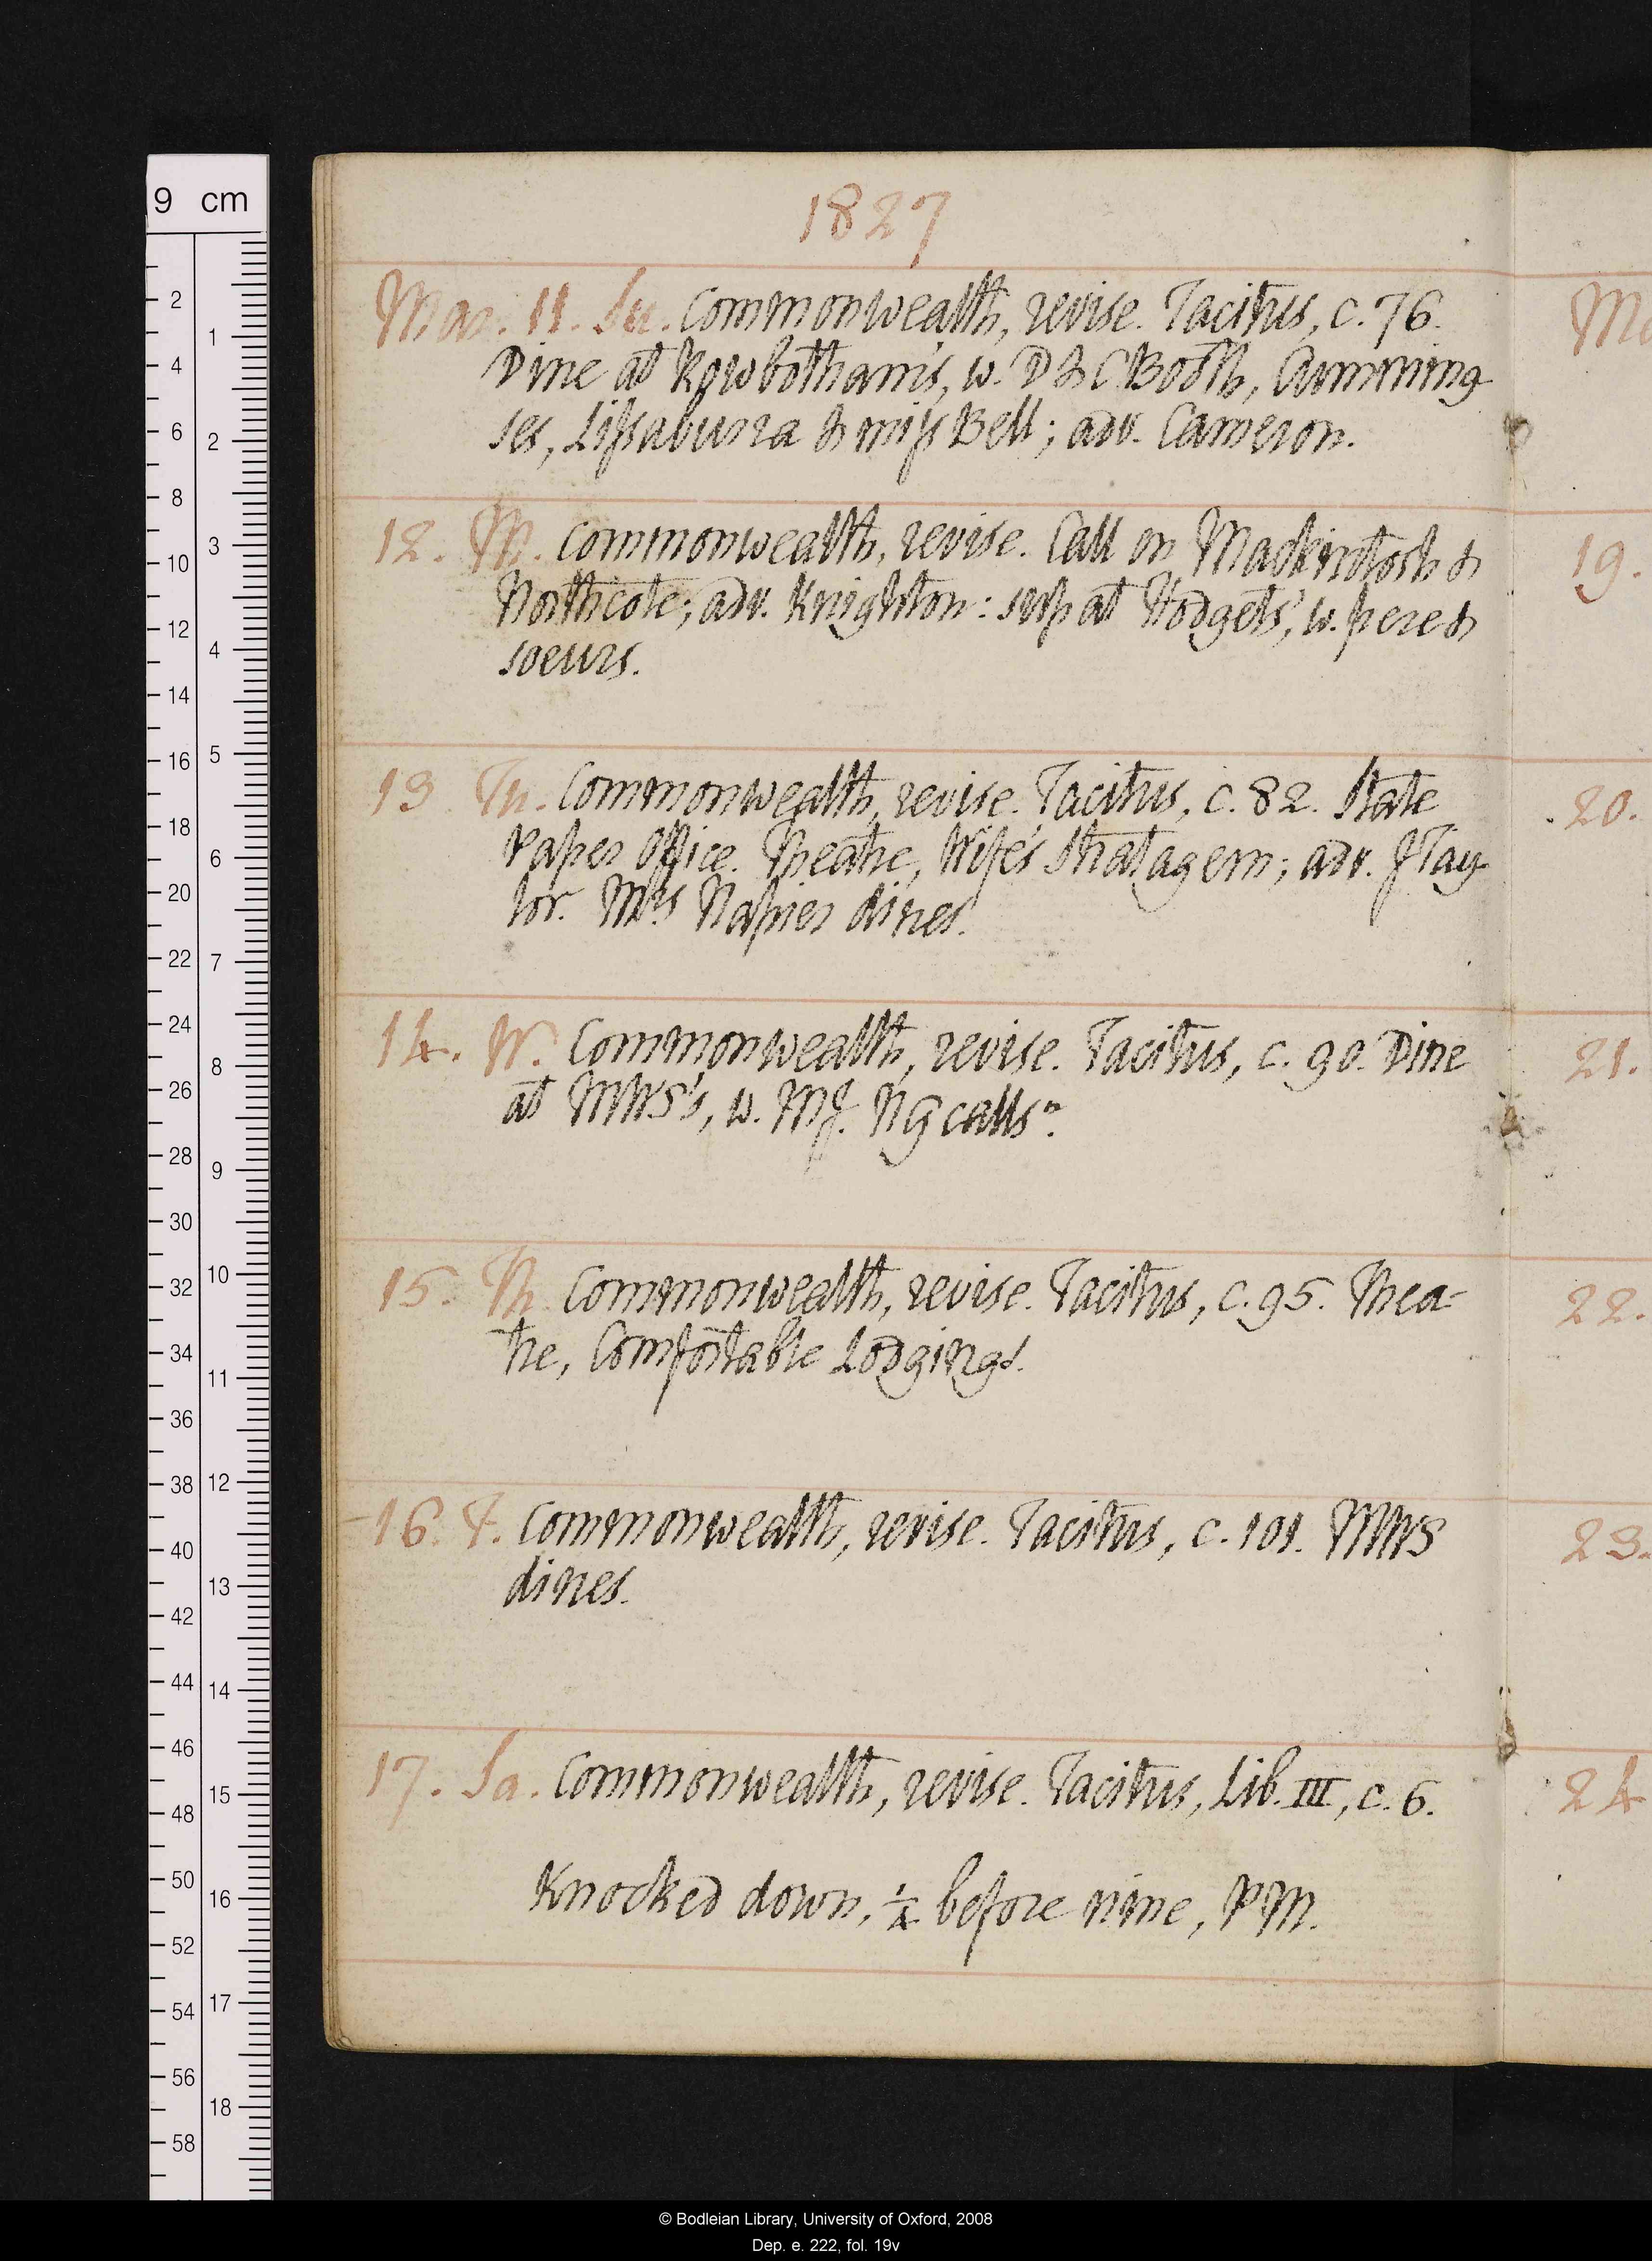 1827
Mar. 11. Su. Commonwealth, revise. Tacitus, c. 76.
Dine at Rowbotham's, w. D & C Booth, Cumming-
ses, Lissaburra & miss Bell; adv. Cameron.
12. M. Commonwealth, revise. Call on Mackintosh &
Northcote; adv. Knighton: sup at Hodgets', w. pere &
soeurs.
13 Tu. Commonwealth, revise. Tacitus, c. 82. State
Paper Office. Theatre, Wife's Stratagem; adv. J Tay-
lor. Mrs Napier dines.
14. W. Commonwealth, revise. Tacitus, c. 90. Dine
at MWS's, w. MJ. N G calls n.
15. Th. Commonwealth, revise. Tacitus, c. 95. Thea-
tre, Comfortable Lodgings.
16. F. Commonwealth, revise. Tacitus, c. 101. MWS
dines.
17. Sa. Commonwealth, revise. Tacitus, Lib. III, c. 6.
Knocked down, 1/4 before nine, PM.
Ma
19.
20.
21.
22.
23.
24
9 cm
2
4
6
8
10
12
14
16
18
20
22
24
26
28
30
32
34
36
38
40
42
44
46
48
50
52
54
56
58
1
2
3
4
5
6
7
8
9
10
11
12
13
14
15
16
17
18
© Bodleian Library, University of Oxford, 2008
Dep. e. 222, fol. 19v